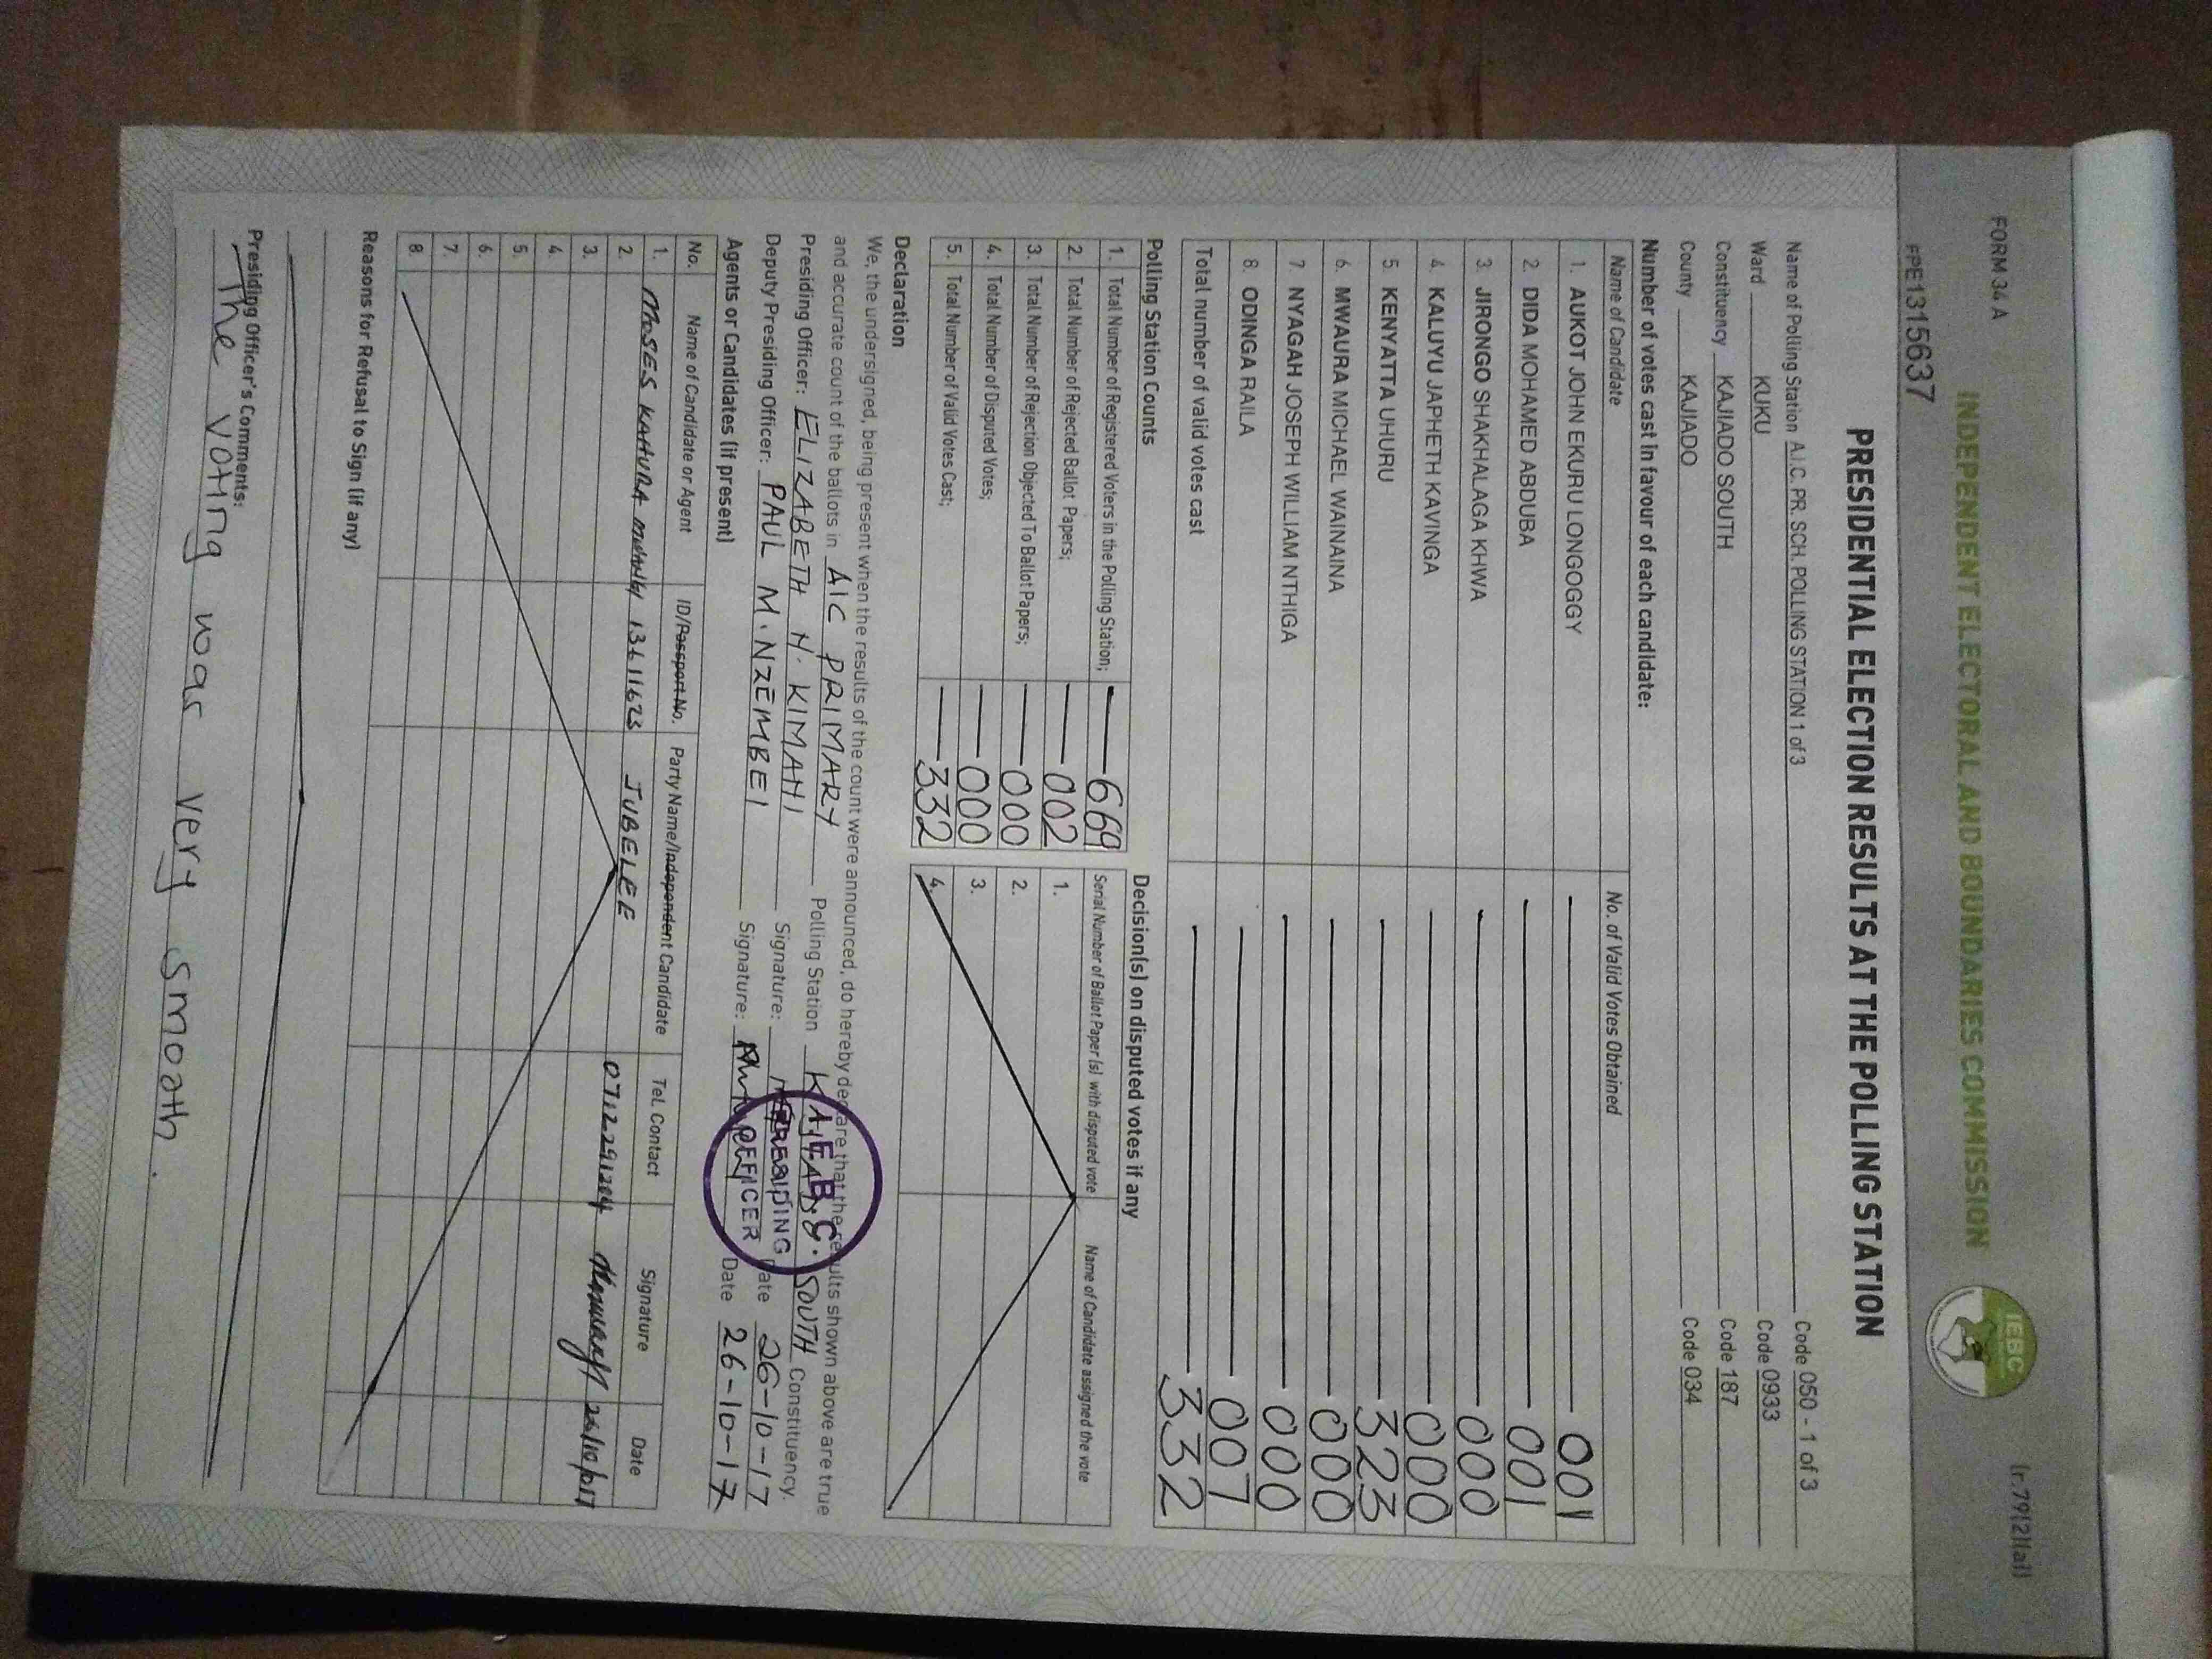 FORM 34 A
(r.79(2)(a))
INDEPENDENT ELECTORAL AND BOUNDARIES COMMISSION
IEBC
FPE1315637
PRESIDENTIAL ELECTION RESULTS AT THE POLLING STATION
Name of Polling Station A.I.C. PR. SCH. POLLING STATION 1 of 3 Code 050 - 1 of 3
Ward KUKU Code 0933
Constituency KAJIADO SOUTH Code 187
County KAJIADO Code 034
Number of votes cast in favour of each candidate:
Name of Candidate No. of Valid Votes Obtained
1. AUKOT JOHN EKURU LONGOGGY 001
2. DIDA MOHAMED ABDUBA 001
3. JIRONGO SHAKHALAGA KHWA 000
4. KALUYU JAPHETH KAVINGA 000
5. KENYATTA UHURU 323
6. MWAURA MICHAEL WAINAINA 000
7. NYAGAH JOSEPH WILLIAM NTHIGA 000
8. ODINGA RAILA 007
Total number of valid votes cast 332
Polling Station Counts
1. Total Number of Registered Voters in the Polling Station; 669
2. Total Number of Rejected Ballot Papers; 002
3. Total Number of Rejection Objected To Ballot Papers; 000
4. Total Number of Disputed Votes; 000
5. Total Number of Valid Votes Cast; 332
Decision(s) on disputed votes if any
Serial Number of Ballot Paper (s) with disputed vote Name of Candidate assigned the vote
1.
2.
3.
4.
Declaration
We, the undersigned, being present when the results of the count were announced, do hereby declare that the results shown above are true
and accurate count of the ballots in AIC PRIMARY Polling Station KAJIADO SOUTH Constituency.
Presiding Officer: ELIZABETH N. KIMANI Signature: Date 26-10-17
Deputy Presiding Officer: PAUL M. NZEMBEI Signature: Date 26-10-17
I.E.B.C.
PRESIDING
OFFICER
Agents or Candidates (if present)
No. Name of Candidate or Agent ID/Passport No. Party Name/Independent Candidate Tel. Contact Signature Date
1. MOSES KAHURA 13611623 JUBELEE 26/10/2017
2.
3.
4.
5.
6.
7.
8.
Reasons for Refusal to Sign (if any)
Presiding Officer's Comments:
The voting was very smooth.